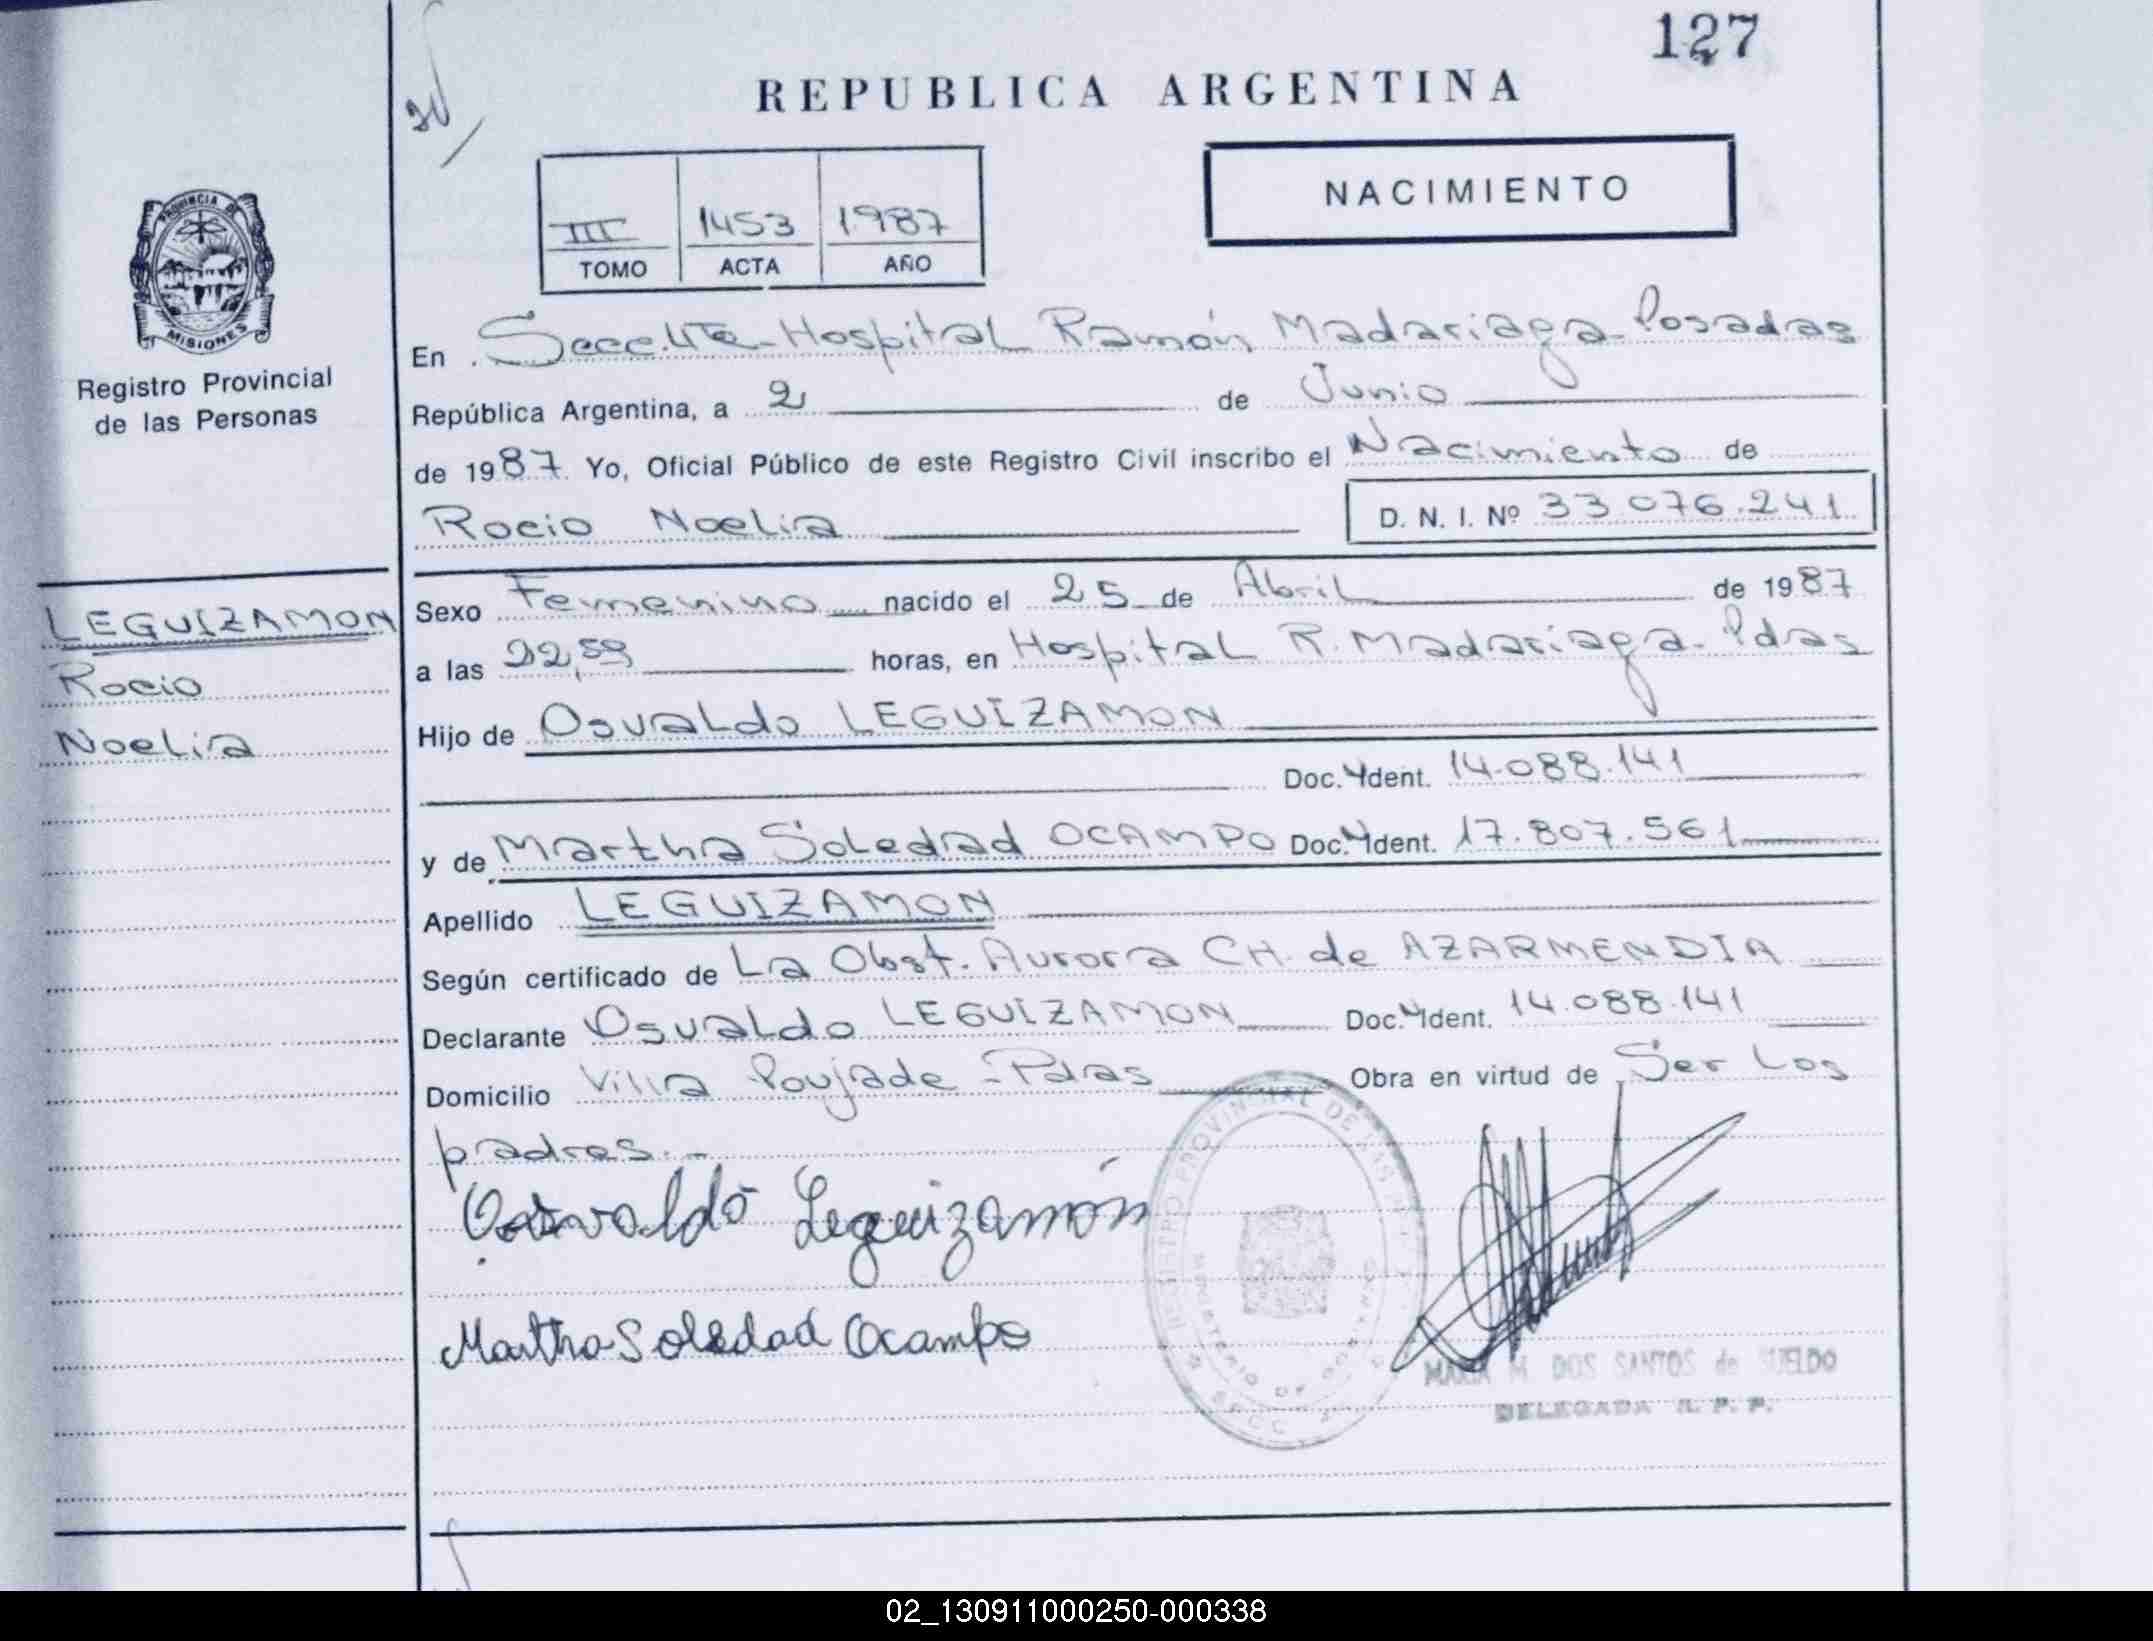 127
REPUBLICA ARGENTINA
NACIMIENTO
III 1453 1987
TOMO ACTA AÑO
PROVINCIA DE
MISIONES
Registro Provincial
de las Personas
En Hospital Ramón Madariaga - Posadas
República Argentina, a 2 de Junio
de 1987. Yo, Oficial Público de este Registro Civil inscribo el Nacimiento de
Rocio Noelia D. N. I. Nº 33.076.241
LEGUIZAMON
Rocio
Noelia
Sexo Femenino nacido el 25 de Abril de 1987
a las 22,59 horas, en Hospital R. Madariaga - Pdas
Hijo de Osvaldo LEGUIZAMON
Doc. Ident. 14.088.141
y de Martha Soledad OCAMPO Doc. Ident. 17.807.561
Apellido LEGUIZAMON
Según certificado de La Obst. Aurora CH. de AZARMENDIA
Declarante Osvaldo LEGUIZAMON Doc. Ident. 14.088.141
Domicilio Villa Poujade - Pdas Obra en virtud de Ser Los
padres. -
Osvaldo Leguizamón
Martha Soledad Ocampo
REGISTRO PROVINCIAL DE LAS
MINISTERIO DE GOBIERNO
MARIA M. DOS SANTOS de SUELDO
DELEGADA R. P. P.
02_130911000250-000338